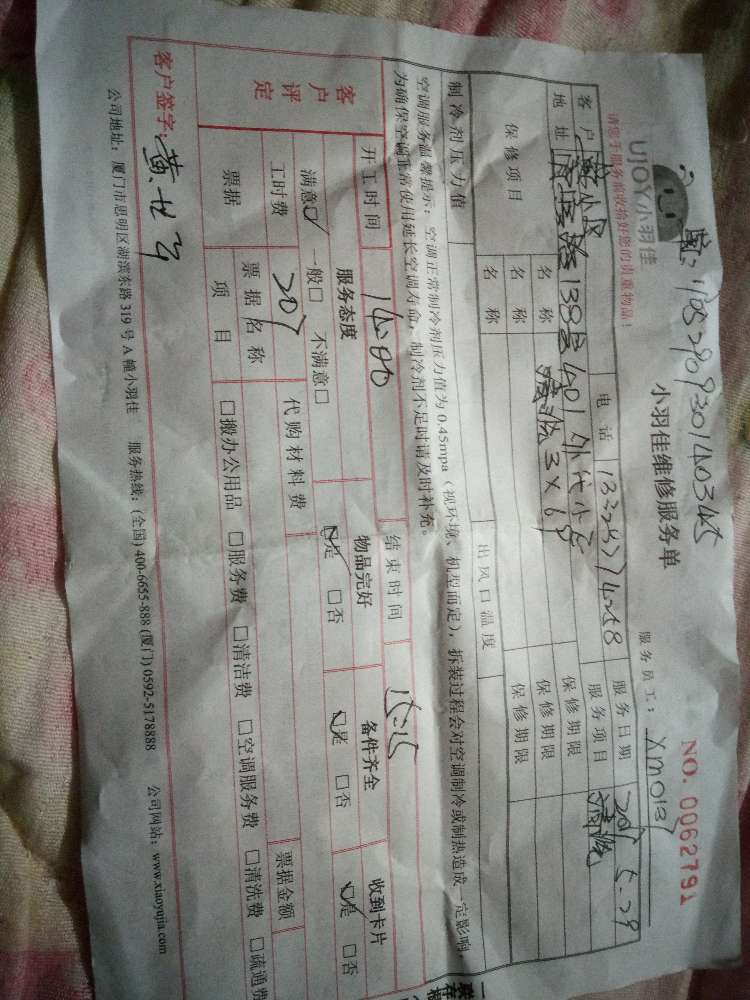 1705290930140345
NO. 0062791
UJOY小羽佳
小羽佳维修服务单
服务员工: XM0187
请您于服务前收拾好您的贵重物品!
客户 电话 服务日期 5.29
地址 138号401 服务项目 清洗
保修项目 名称 3×69 保修期限
名称 保修期限
名称 保修期限
制冷剂压力值 出风口温度
空调服务温馨提示: 空调正常制冷剂压力值为0.45mpa (视环境、机型而定), 拆装过程会对空调制冷或制热造成一定影响,
为确保空调正常使用延长空调寿命, 制冷剂不足时请及时补充。
开工时间 14:00 结束时间 15:15
客户评定 服务态度 物品完好 备件齐全 收到卡片
满意☑ 一般□ 不满意□ ☑是 □否 ☑是 □否 ☑是 □否
工时费 207 代购材料费 票据金额
票据 票据名称
项目 □搬办公用品 □服务费 □清洁费 □空调服务费 □清洗费 □疏通费
客户签字: 黄
公司地址: 厦门市思明区湖滨东路319号A幢小羽佳 服务热线: (全国) 400-6655-888 (厦门) 0592-5178888 公司网站: www.xiaoyujia.com